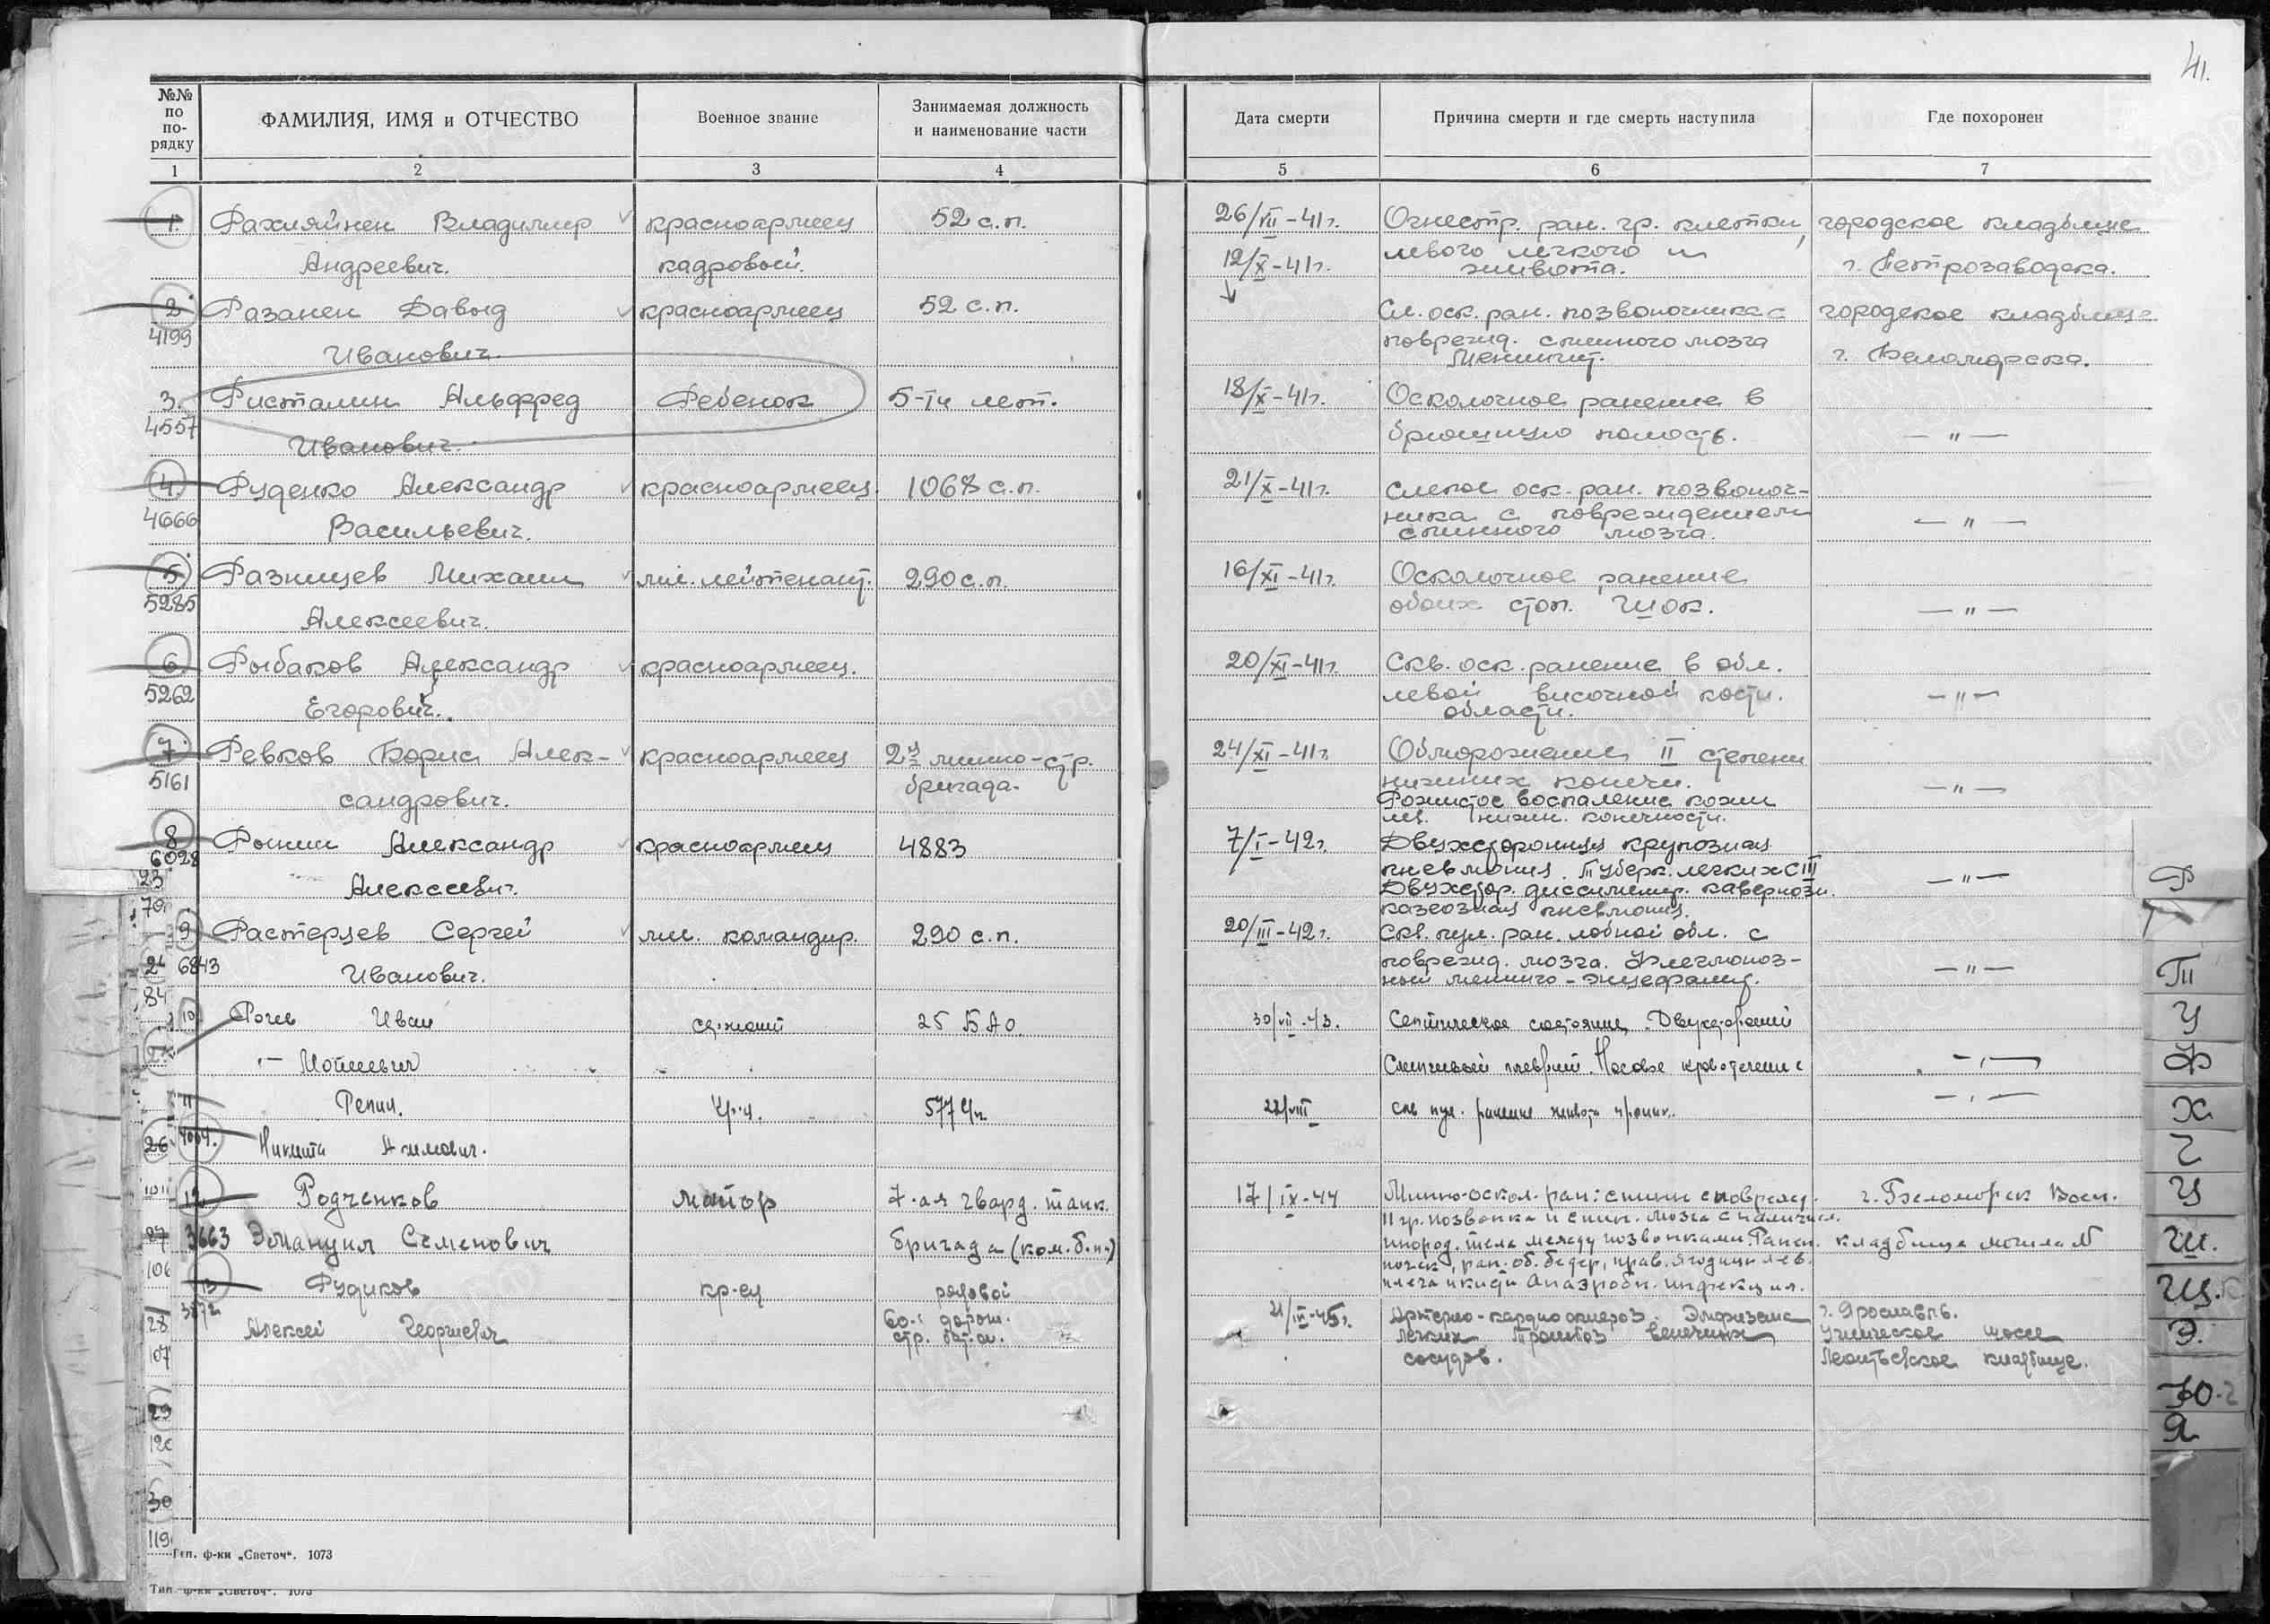 41.
№№ по по-рядку
ФАМИЛИЯ, ИМЯ и ОТЧЕСТВО
Военное звание
Занимаемая должность и наименование части
Дата смерти
Причина смерти и где смерть наступила
Где похоронен
1 2 3 4 5 6 7
1. Рахияйнен Владимир красноармеец 52 с.п. 26/VII-41г. Огнестр. ран. гр. клетки, городское кладбище
Андреевич. кадровый. 12/X-41г. левого легкого и
живота. г. Петрозаводска.
2. Разанен Давыд красноармеец 52 с.п. Сл. оск. ран. позвоночника с городское кладбище
4199 поврежд. спинного мозга
Иванович. Менингит. г. Беломорска.
3. Ристалин Альфред Ребенок 5-ти лет. 18/X-41г. Осколочное ранение в
4557 Иванович. брюшную полость. — " —
4. Руденко Александр красноармеец. 1068 с.п. 21/X-41г. Слепое оск. ран. позвоноч-
4666 Васильевич. ника с повреждением — " —
спинного мозга.
5. Разницев Михаил мл. лейтенант. 290 с.п. 16/XI-41г. Осколочное ранение
5285 Алексеевич. обоих стоп. Шок. — " —
6. Рыбаков Александр красноармеец. 20/XI-41г. Скв. оск. ранение в обл.
5262 Егорович. левой височной кости. — " —
области.
7. Ревков Борис Алек- красноармеец 24/XI-41г. Обморожение II степени
5161 сандрович. бригада. нижних конечн. — " —
Рожистое воспаление кожи
нижн. конечности.
8 Рогнин Александр красноармеец 4883 7/I-42г. Двухсторонняя крупозная
6028 пневмония. Туберк. легких С III
Алексеевич. Двухстор. диссемин. каверноз. — " —
казеозная пневмония.
9. Растерцев Сергей мл. командир. 290 с.п. 20/III-42г. Скв. пул. ран. лобной обл. с
6843 Иванович. поврежд. мозга. Флегмоноз- — " —
ный менинго-энцефалит.
10 Рочев Иван сержант 25 БАО. 30/VII-43. Септическое состояние. Двухсторонний
Слипчивый плеврит. Носовое кровотечение
11 Репин. 577 22/VIII скв пул. ранение живота
4004. Никита
12 Родченков майор 7-ая гвард. танк. 17/IX-44 Минно-оскол. ран: спины с поврежд. г. Беломорск Воен.
II гр. позвонка и спин. мозга с наличием
3663 Эмануил Семенович бригада (ком. б-на) инород. тела между позвонками. Ранен. кладбище могила №
почек, ран. об. бедер, прав. ягодицы лев.
плеча и кисти Анаэробн. инфекция.
13 Рудиков кр-ец рядовой
3872 60-й дорож. 21/III-45г. Артерио-кардиосклероз. Эмфизема г. Ярославль.
Алексей Георгиевич стр. бат-он. легких Тромбоз венечных Угличское шоссе
сосудов. Леонтьевское кладбище.
Тип. ф-ки „Светоч". 1073
Тип. ф-ки „Светоч". 1073
Р
Т
П
У
Ф
Х
Ч
Ц
Ш.
Щ.
Э.
Ю
Я